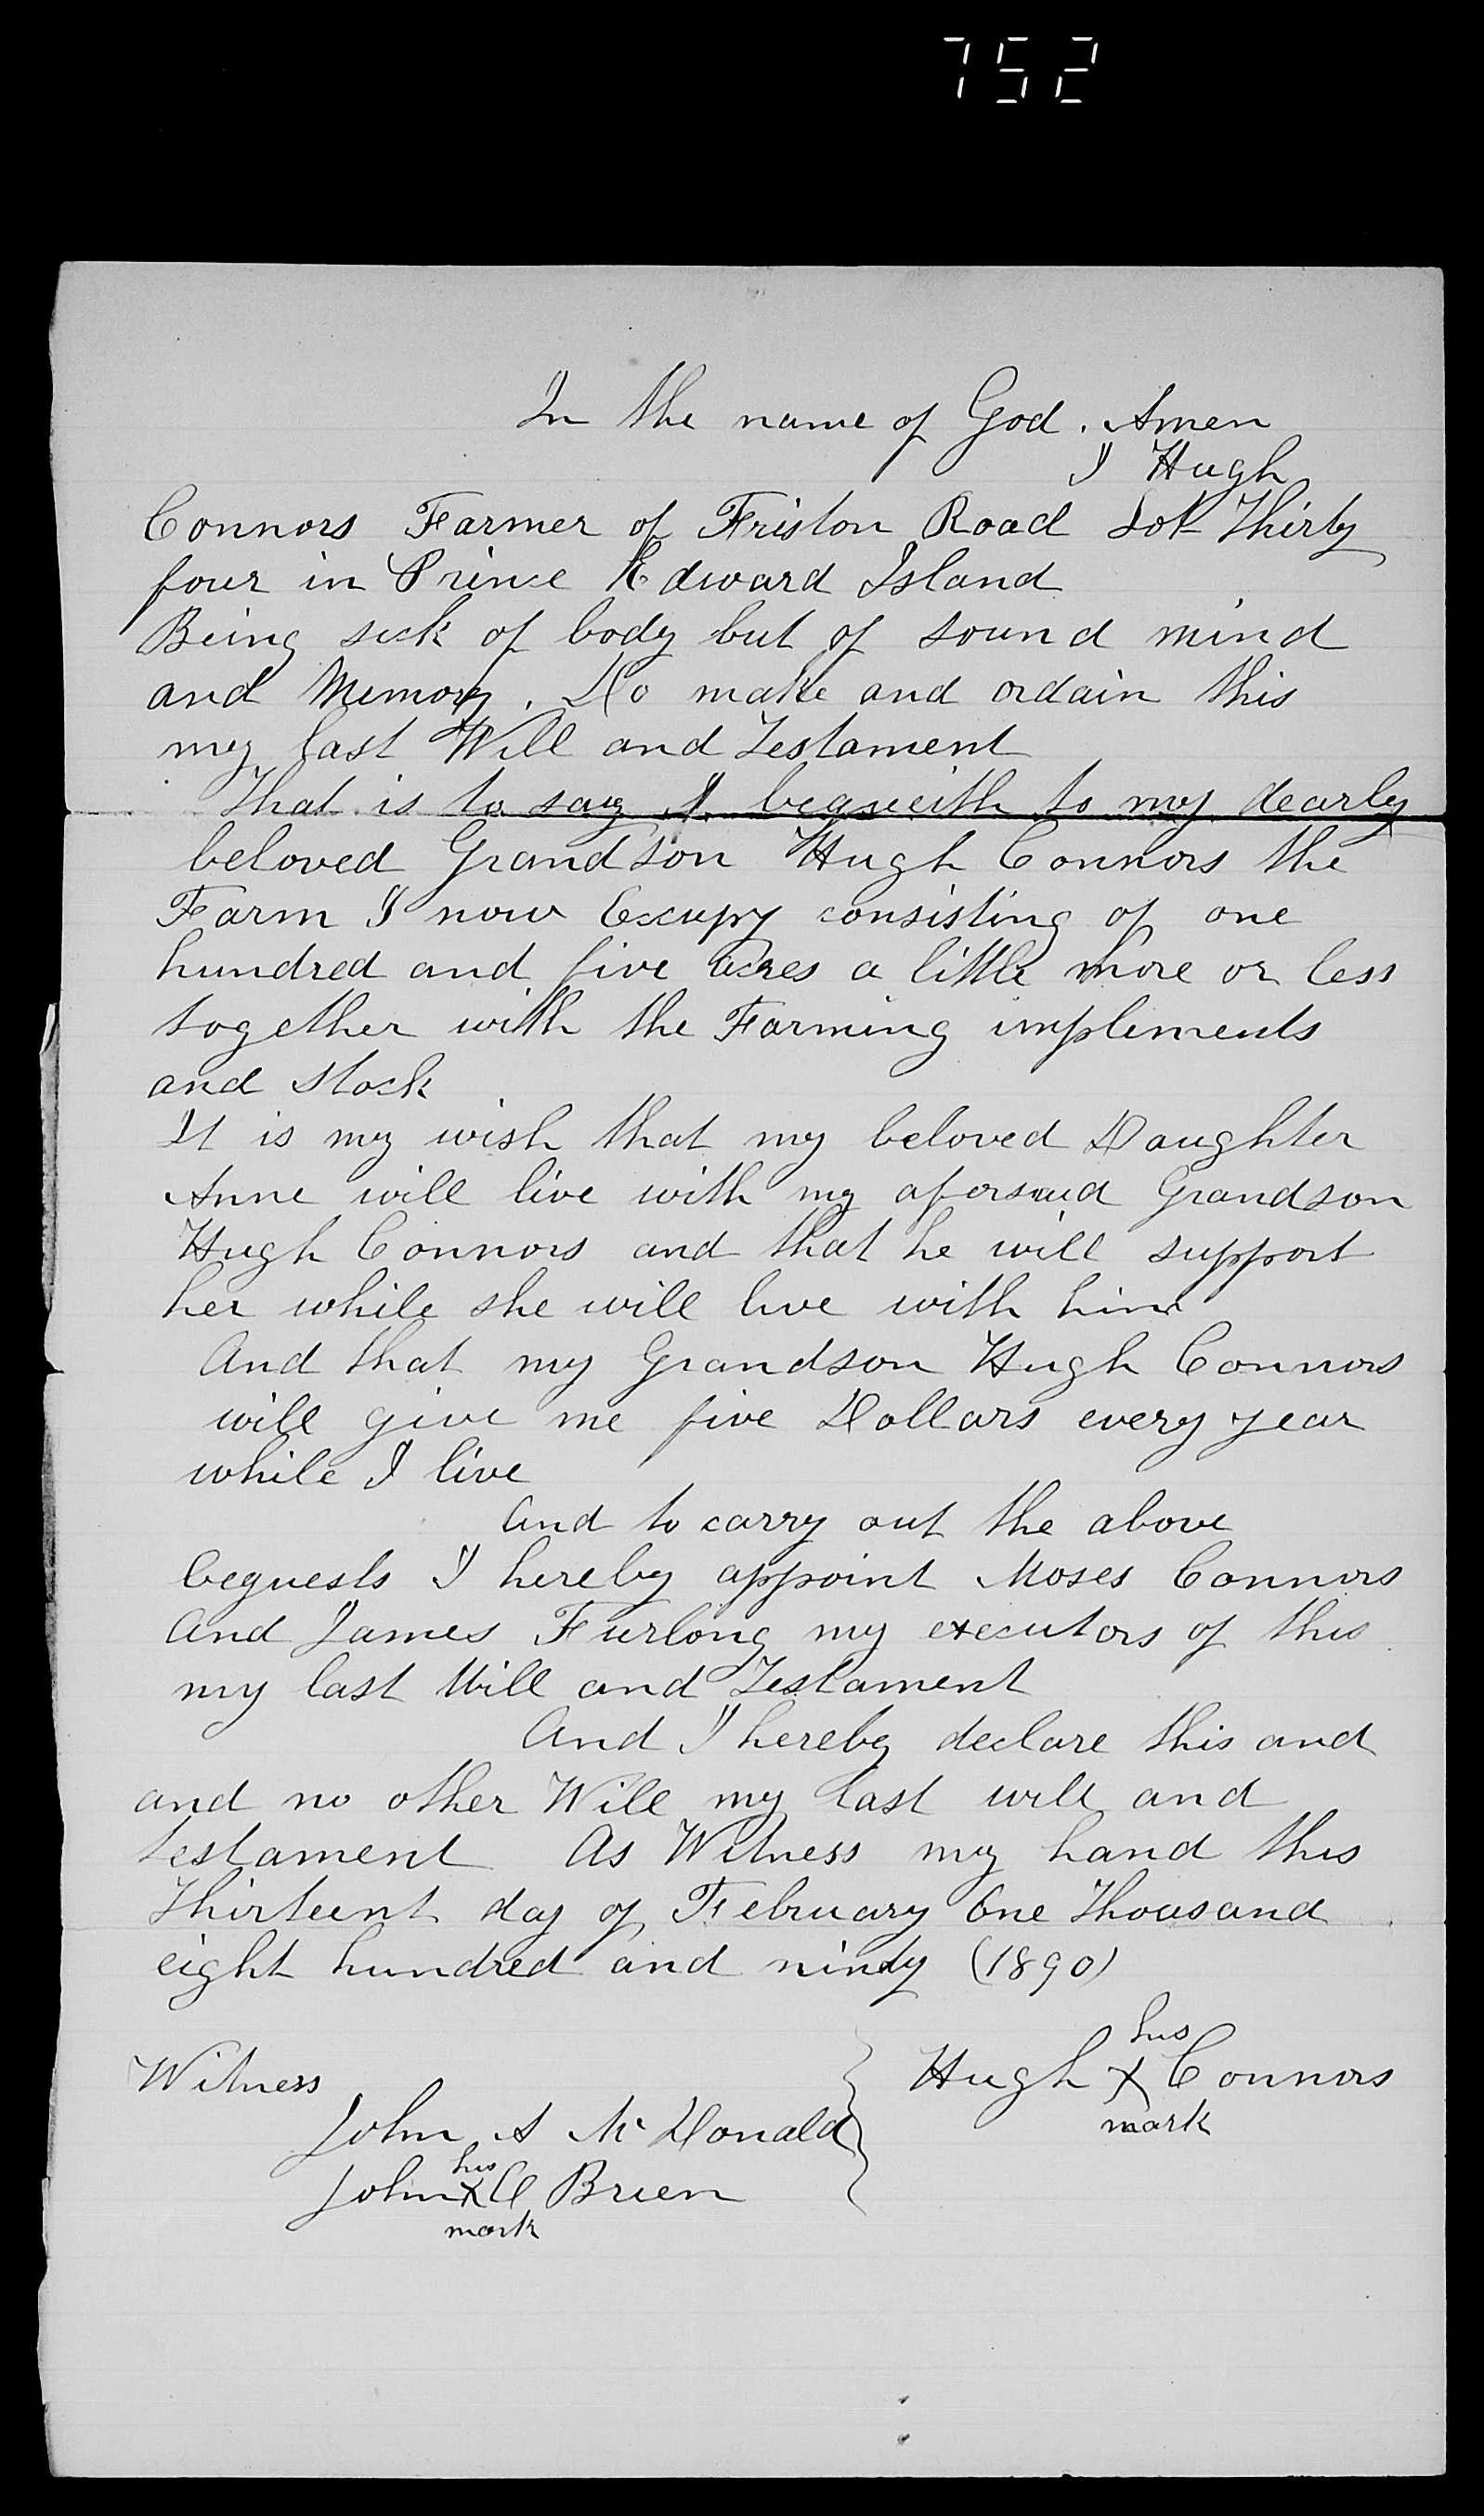 752
In the name of God. Amen
I Hugh
Connors Farmer of Friston Road Lot Thirty
four in Prince Edward Island
Being sick of body but of sound mind
and Memory. Do make and ordain this
my last Will and Testament
That is to say I bequeith to my dearly
beloved Grandson Hugh Connors the
Farm I now Occupy consisting of one
hundred and five acres a little more or less
together with the Farming implements
and stock
It is my wish that my beloved Daughter
Anne will live with my aforsaid Grandson
Hugh Connors and that he will support
her while she will live with him
And that my Grandson Hugh Connors
will give me five Dollars every year
while I live
And to carry out the above
bequests I hereby appoint Moses Connors
And James Furlong my executors of this
my last Will and Testament
And I hereby declare this and
and no other Will my last will and
testament As Witness my hand this
Thirteent day of February One Thousand
eight hundred and ninty (1890)
his
Witness Hugh X Connors
mark
John A McDonald
his
John X O Brien
mark